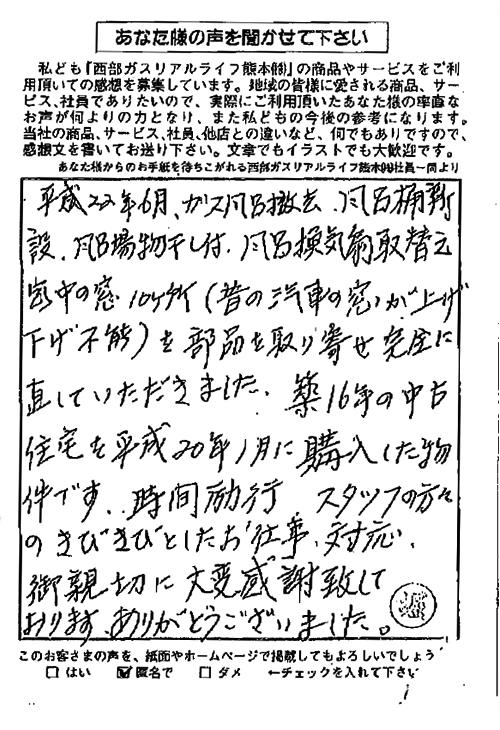 あなた様の声を聞かせて下さい
私ども『西部ガスリアルライフ熊本㈱』の商品やサービスをご利
用頂いての感想を募集しています。地域の皆様に愛される商品、サー
ビス、社員でありたいので、実際にご利用頂いたあなた様の率直な
お声が何よりの力となり、また私どもの今後の参考になります。
当社の商品、サービス、社員、他店との違いなど、何でもありですので、
感想文を書いてお送り下さい。文章でもイラストでも大歓迎です。
あなた様からのお手紙を待ちこがれる西部ガスリアルライフ熊本㈱社員一同より
平成22年6月、ガス風呂撤去、風呂桶新
設、風呂場物干し付、風呂換気扇取替え
家中の窓10ヶ所(昔の汽車の窓)が上げ
下げ不能)を部品を取り寄せ完全に
直していただきました。築16年の中古
住宅を平成20年1月に購入した物
件です。時間励行 スタッフの方々
のきびきびとしたお仕事、対応、
御親切に大変感謝致して
おります。ありがとうございました。
このお客さまの声を、紙面やホームページで掲載してもよろしいでしょう
□はい ☑匿名で □ダメ ←チェックを入れて下さい